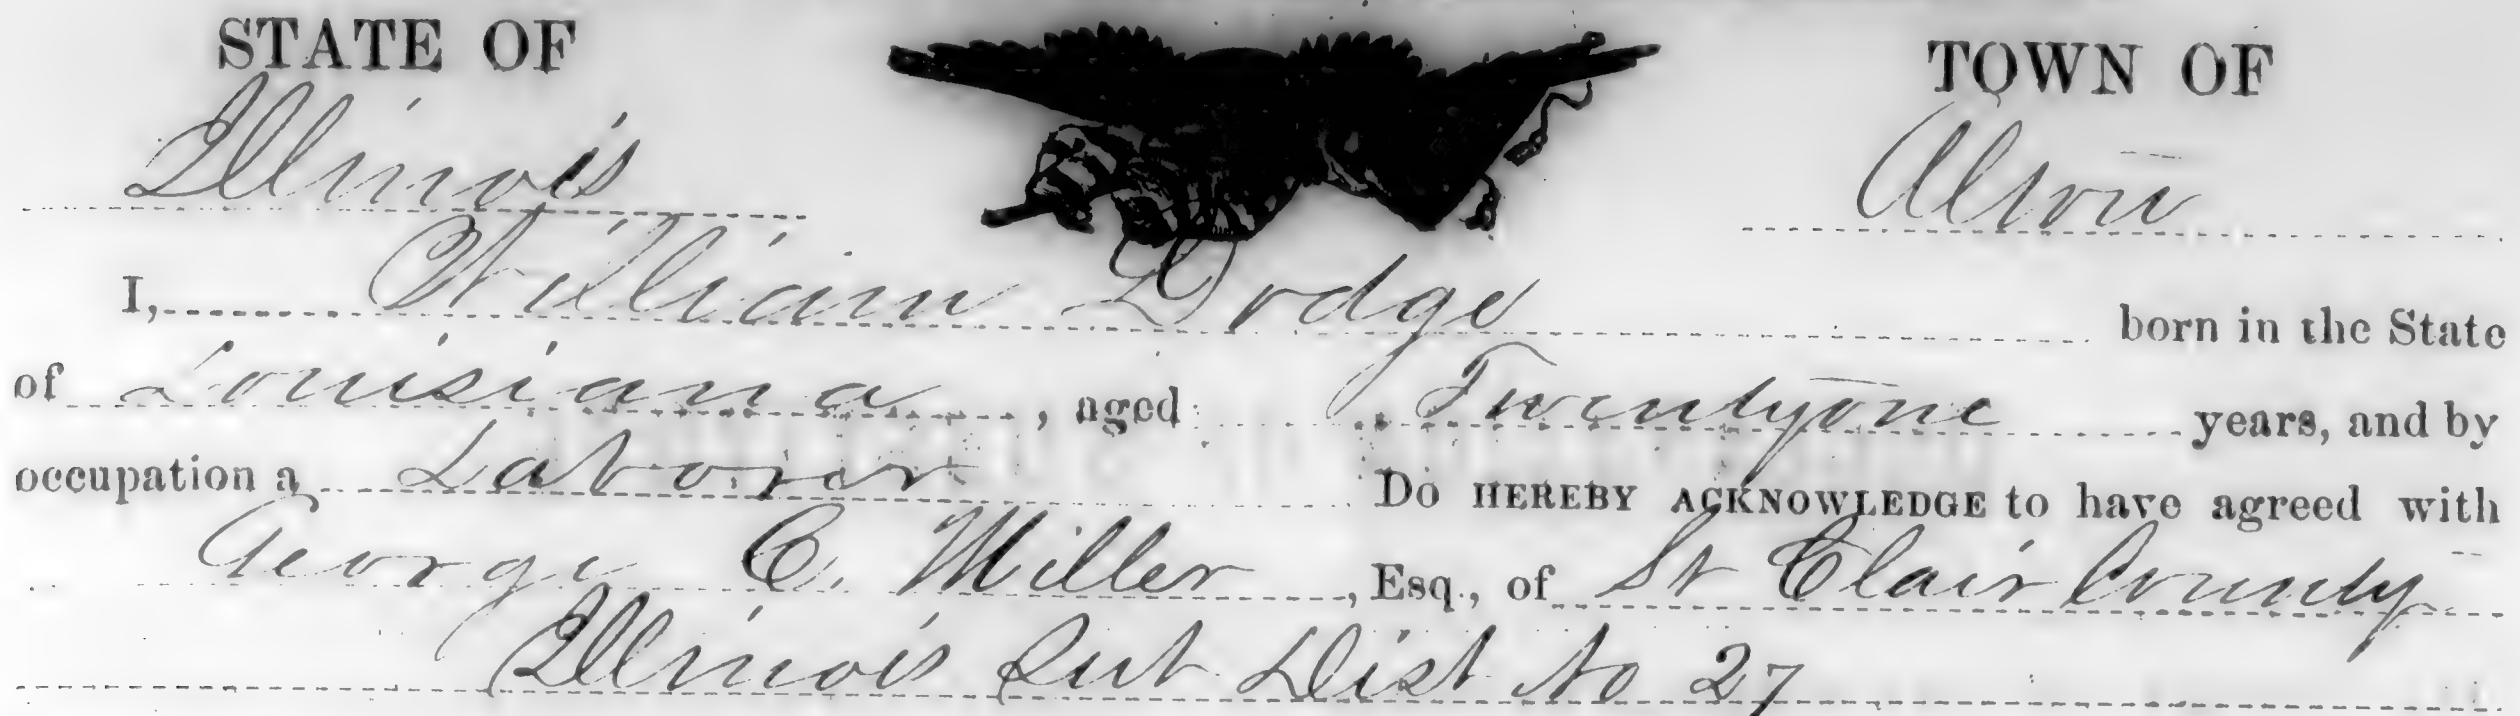 STATE OF TOWN OF
Illinois Alton
I, William Dodge born in the State
of Louisiana, aged Twentyone years, and by
occupation a Laborer Do HEREBY ACKNOWLEDGE to have agreed with
George C. Miller, Esq., of St Clair County
Illinois Sub Dist No 27